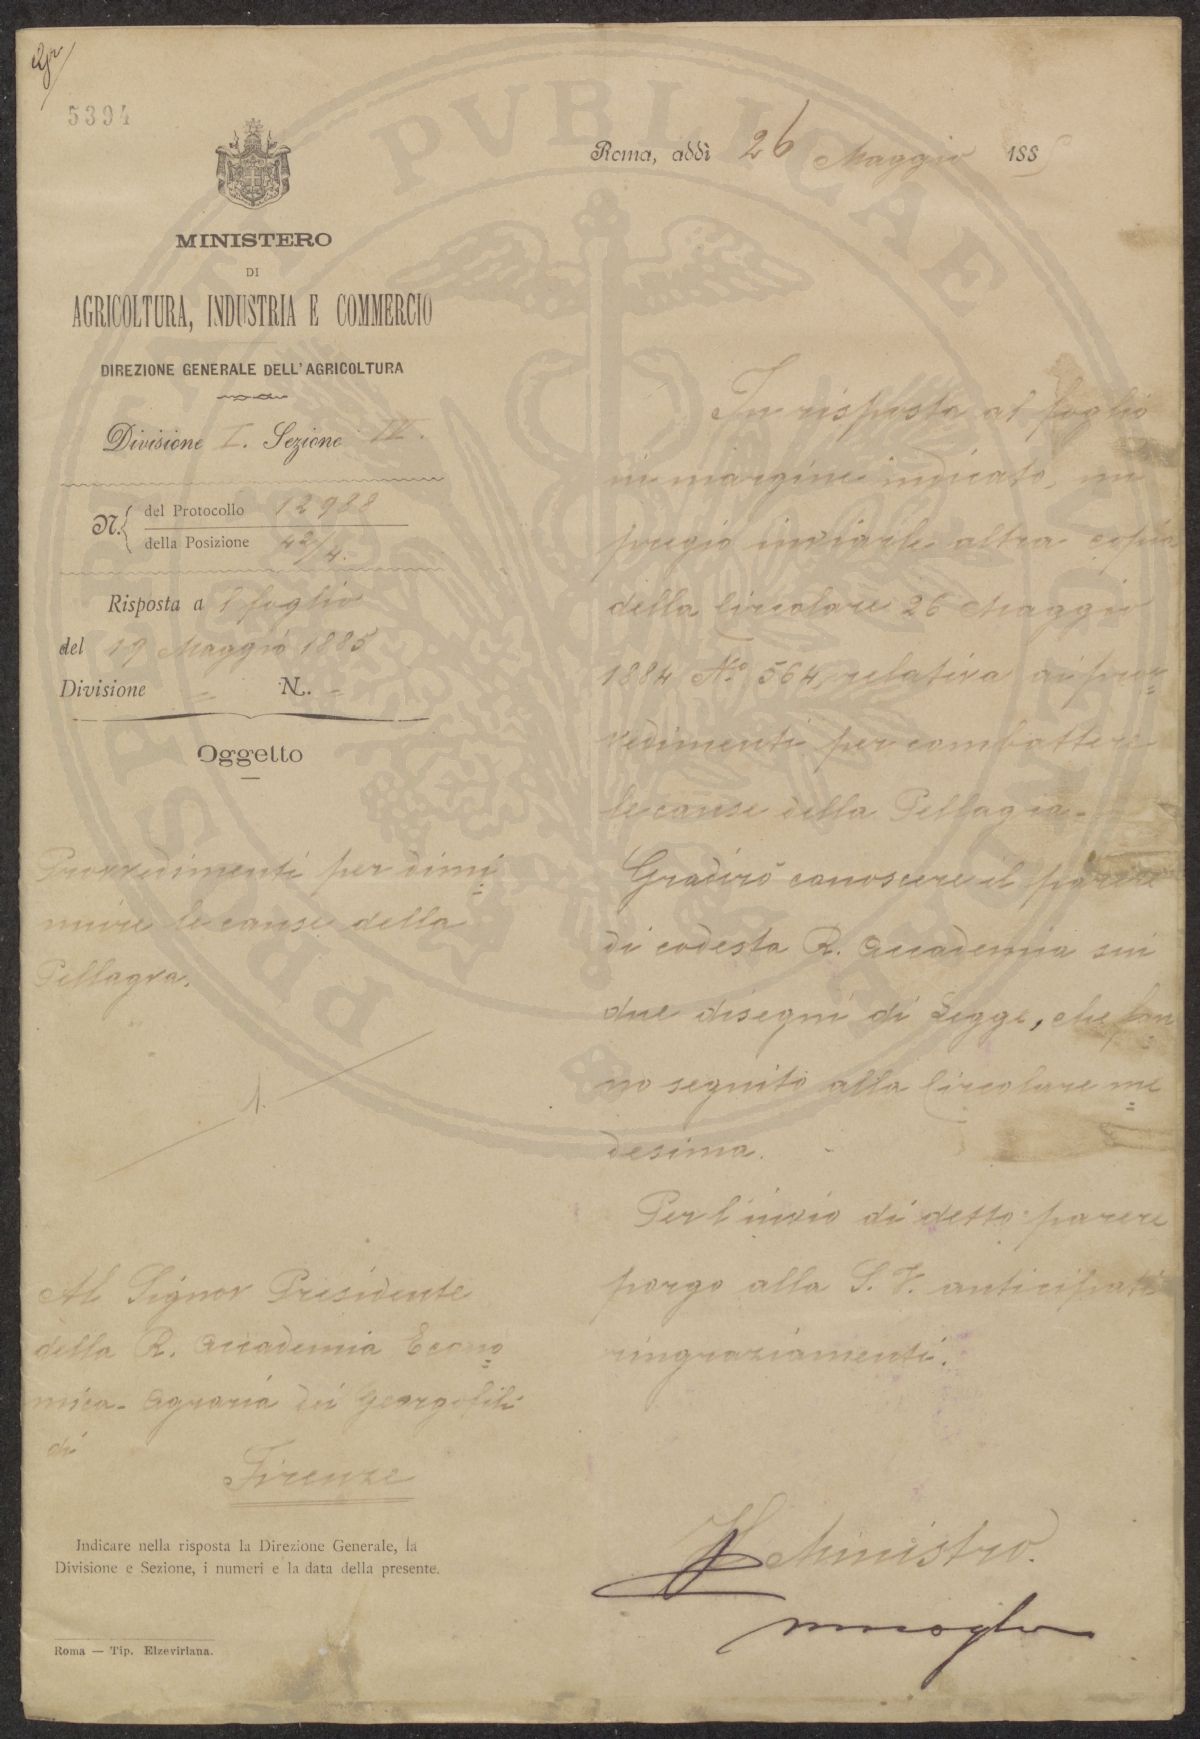 5394
MINISTERO
DI
AGRICOLTURA, INDUSTRIA E COMMERCIO
DIREZIONE GENERALE DELL'AGRICOLTURA
Divisione I. Sezione IV.
N. del Protocollo 12988
della Posizione 42/4.
Risposta al foglio
del 19 Maggio 1885
Divisione " N. "
Oggetto
Provvedimenti per dimi=
nuire le cause della
Pellagra.
1.
Al Signor Presidente
della R. Accademia Econo=
mica-Agraria dei Georgofili
di
Firenze
Indicare nella risposta la Direzione Generale, la
Divisione e Sezione, i numeri e la data della presente.
Roma — Tip. Elzeviriana.
Roma, addì 26 Maggio 1885
In risposta al foglio
in margine indicato, mi
pregio inviarle altra copia
della Circolare 26 Maggio
1884 N.° 564, relativa ai prov=
vedimenti per combattere
le cause della Pellagra.
Gradirò conoscere il parere
di codesta R. Accademia sui
due disegni di Legge, che fan=
no seguito alla Circolare me=
desima.
Per l'invio di detto parere
porgo alla S. V. anticipati
ringraziamenti.
Il Ministro.